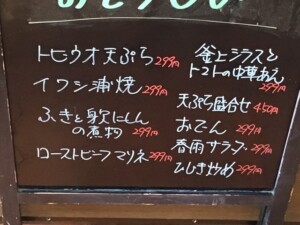 トビウオ天ぷら 299円
イワシ浦焼 299円
ふきと身欠にしん
の煮物 299円
ローストビーフマリネ 299円
釜上シラスと
トマトの中華あん
299円
天ぷら盛合せ 450円
おでん 299円
春雨サラダ 299円
ひじき炒め 299円